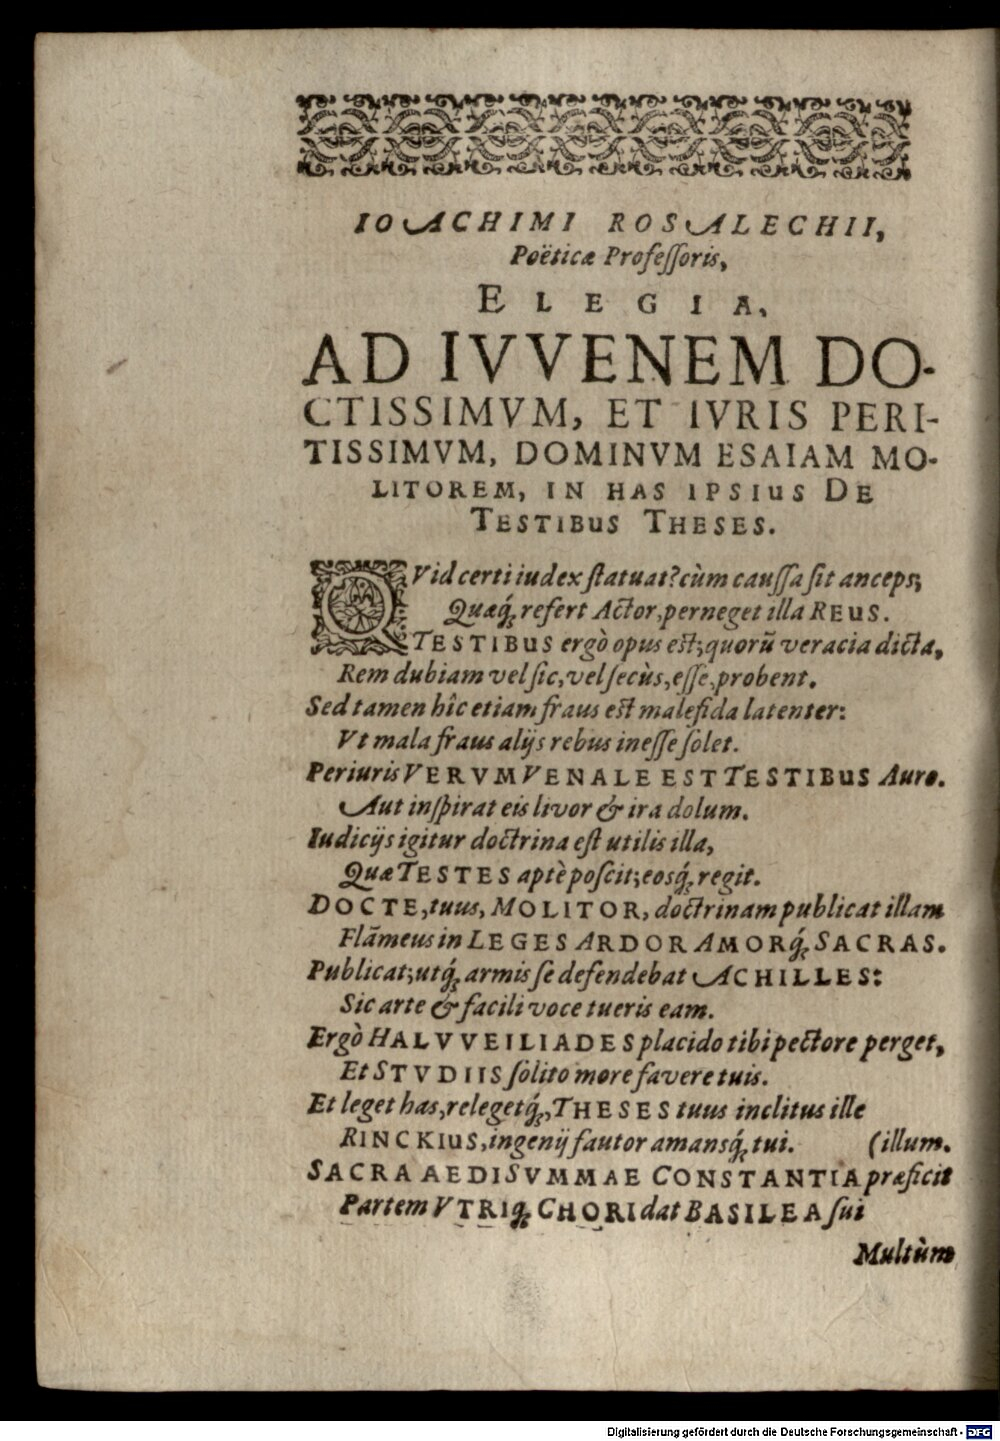 IOACHIMI ROSALECHII,
Poëticæ Professoris,
ELEGIA,
AD IVVENEM DO-
CTISSIMVM, ET IVRIS PERI-
TISSIMVM, DOMINVM ESAIAM MO-
LITOREM, IN HAS IPSIUS DE
TESTIBUS THESES.
QVid certi iudex statuat? cùm caussa sit anceps;
Quæq́; refert Actor, perneget illa REUS.
TESTIBUS ergò opus est; quorũ veracia dicta,
Rem dubiam vel sic, vel secùs, esse, probent.
Sed tamen hîc etiam fraus est malefida latenter:
Vt mala fraus alijs rebus inesse solet.
Periuris VERVM VENALE EST TESTIBUS Auro.
Aut inspirat eis livor & ira dolum.
Iudicijs igitur doctrina est utilis illa,
Quæ TESTES aptè poscit; eosq́; regit.
DOCTE, tuus, MOLITOR, doctrinam publicat illam
Flãmeus in LEGES ARDOR AMORq́; SACRAS.
Publicat; utq́; armis se defendebat ACHILLES:
Sic arte & facili voce tueris eam.
Ergò HALVVEILIADES placido tibi pectore perget,
Et STVDIIS solito more favere tuis.
Et leget has, relegetq́;, THESES tuus inclitus ille
RINCKIUS, ingenij fautor amansq́; tui. (illum.
SACRA AEDI SVMMAE CONSTANTIA præficit
Partem VTRIq; CHORI dat BASILEA sui
Multùm
Digitalisierung gefördert durch die Deutsche Forschungsgemeinschaft - DFG